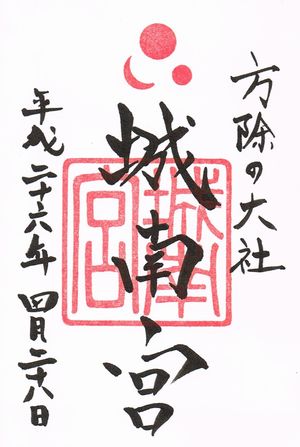 方除の大社
城南宮
平成二十六年 四月二十八日
城南宮